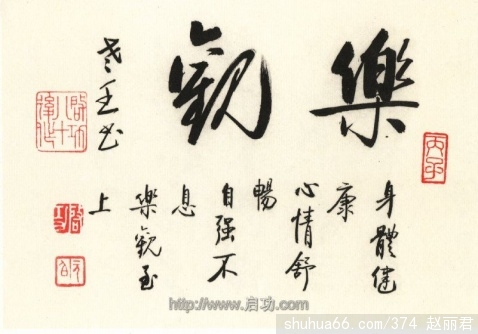 樂觀
身體健
康
心情舒
暢
自强不
息
樂觀至
上
书
http://www.启功.com
shuhua66.com/374 赵丽君